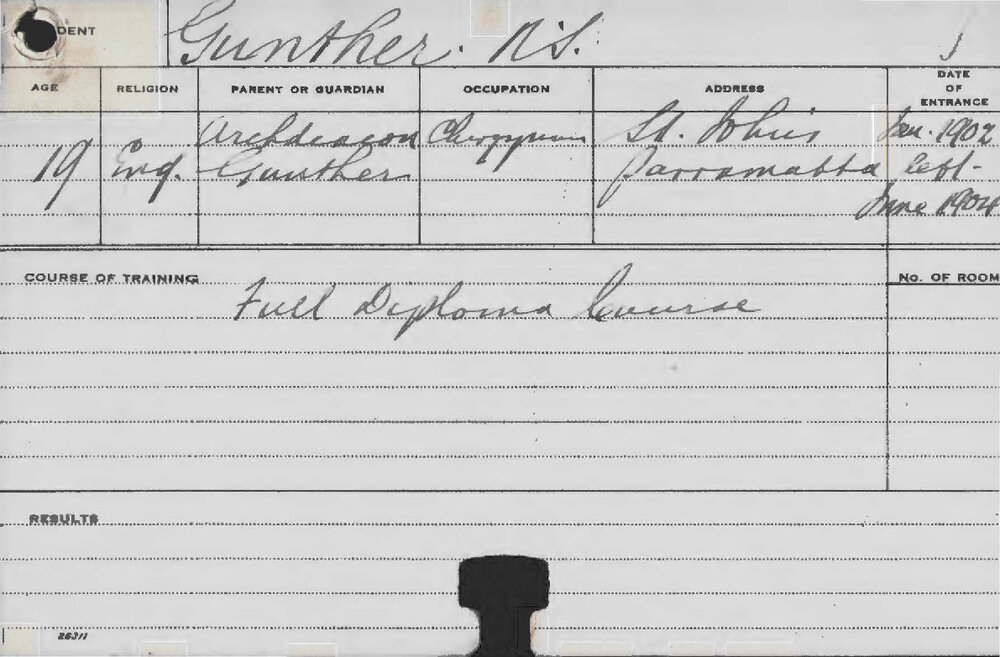 DENT Gunther. N.S.
AGE RELIGION PARENT OR GUARDIAN OCCUPATION ADDRESS DATE OF ENTRANCE
19 Eng. Archdeacon Gunther Clergyman St. John's Parramatta Jan. 1902 left - June 1904
COURSE OF TRAINING No. OF ROOM
Full Diploma Course
RESULTS
26311